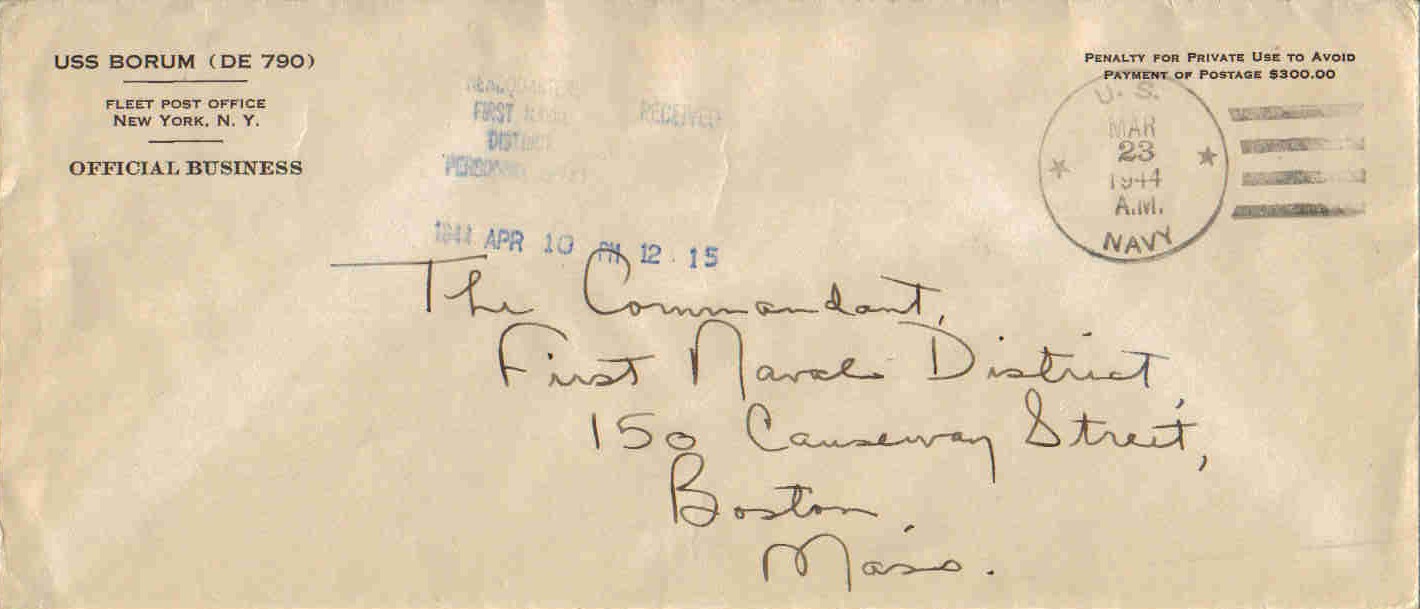 USS BORUM (DE 790)
FLEET POST OFFICE
NEW YORK, N. Y.
OFFICIAL BUSINESS
PENALTY FOR PRIVATE USE TO AVOID
PAYMENT OF POSTAGE $300.00
HEADQUARTERS
FIRST NAVAL
DISTRICT
RECEIVED
1944 APR 10 PM 12 15
U. S.
MAR
23
1944
A.M.
NAVY
The Commandant,
First Naval District,
150 Causeway Street,
Boston,
Mass.